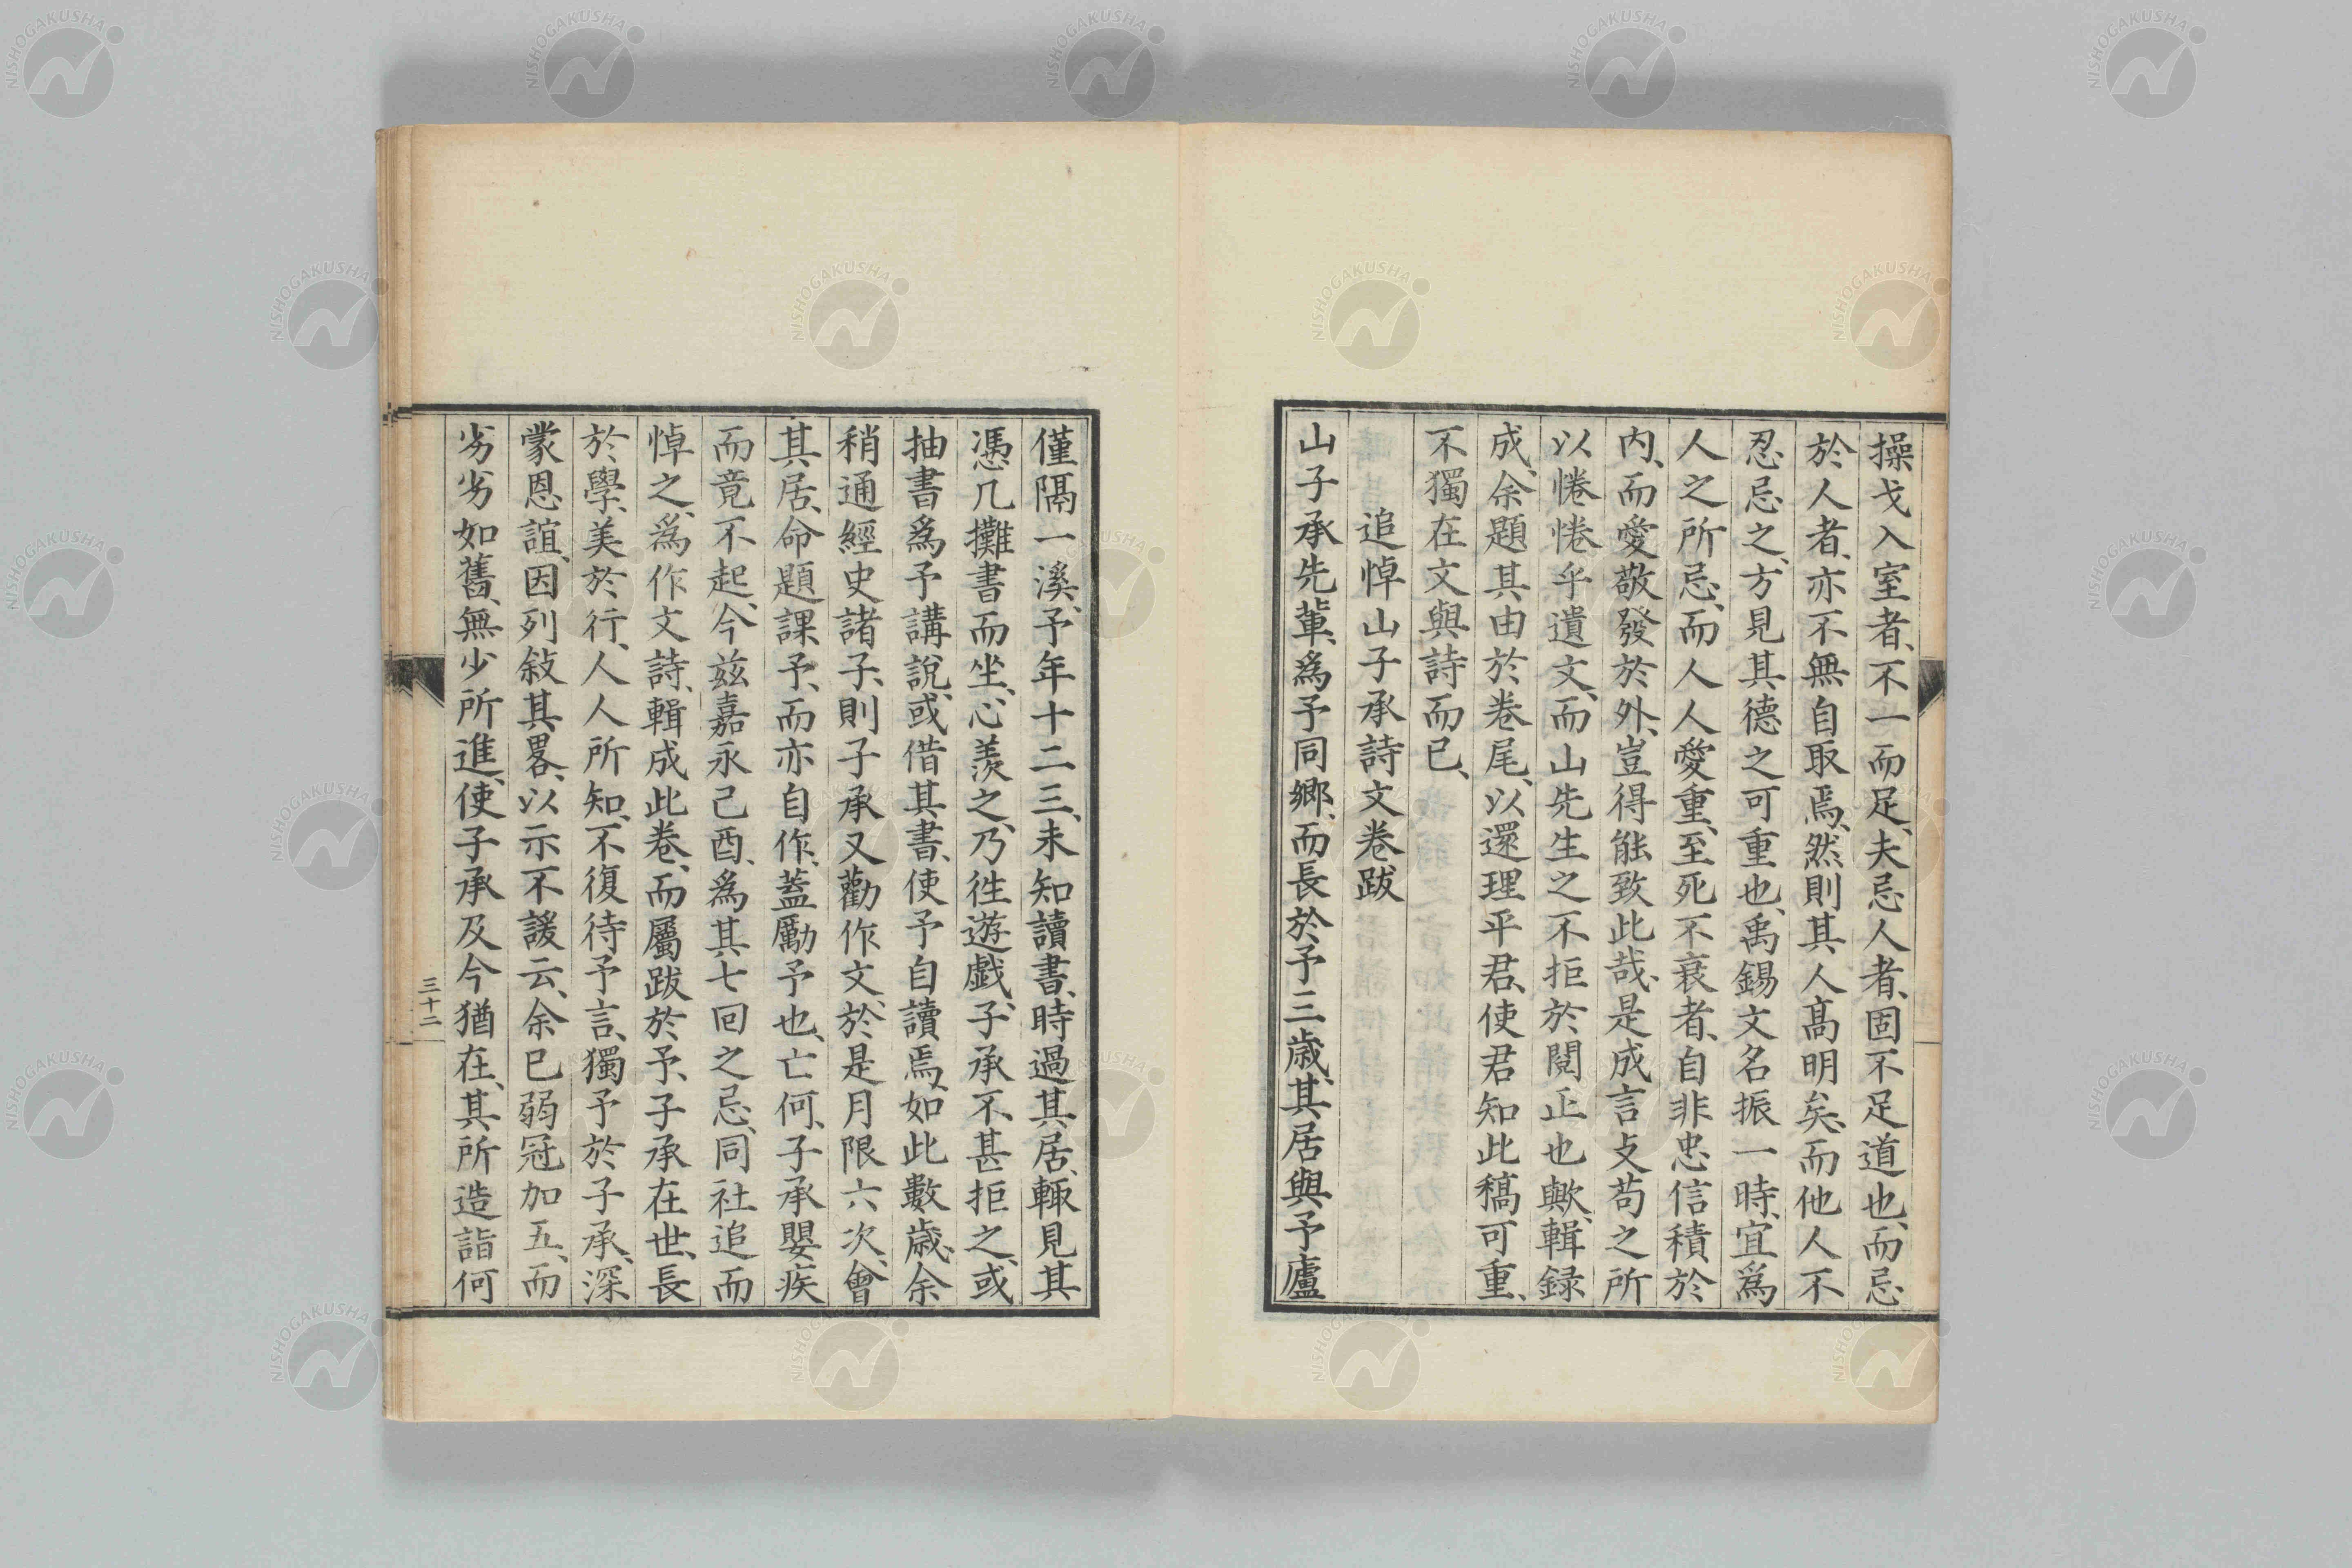 操戈入室者、不一而足、夫忌人者、固不足道也、而忌
於人者、亦不無自取焉、然則其人髙明矣、而他人不
忍忌之、方見其德之可重也、禹錫文名振一時、宜爲
人之所忌、而人人愛重、至死不衰者、自非忠信積於
内、而愛敬發於外、豈得能致此哉、是成言攴苟之所
以惓惓乎遺文、而山先生之不拒於閲正也歟、輯録
成、余題其由於卷尾、以還理平君、使君知此稿可重、
不獨在文與詩而已、
追悼山子承詩文卷跋
山子承先輩、爲予同鄉、而長於予三歳、其居與予廬
僅隔一溪、予年十二三、未知讀書、時過其居、輙見其
憑几攤書而坐、心羨之、乃徃遊戯、子承不甚拒之、或
抽書爲予講說、或借其書、使予自讀焉、如此數歳、余
稍通經史諸子、則子承又勸作文、於是月限六次、會
其居、命題課予、而亦自作、蓋勵予也、亡何、子承嬰疾
而竟不起、今兹嘉永己酉、爲其七回之忌、同社追而
悼之、爲作文詩、輯成此卷、而屬跋於予、子承在世、長
於學、美於行、人人所知、不復待予言、獨予於子承、深
蒙恩誼、因列敍其畧、以示不諼云、余已弱冠加五、而
劣劣如舊、無少所進、使子承及今猶在、其所造詣何
三十二
NISHOGAKUSHA